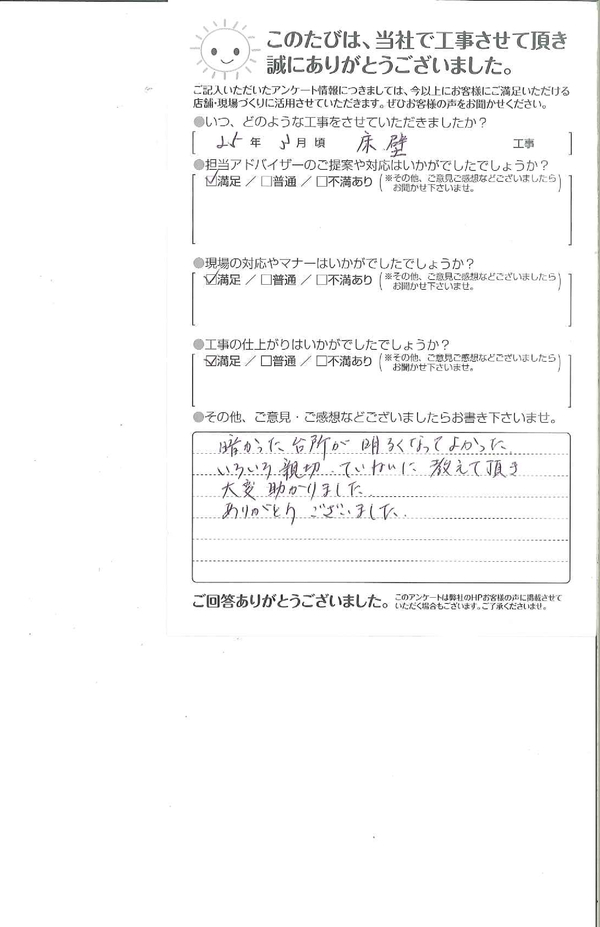 このたびは、当社で工事させて頂き
誠にありがとうございました。
ご記入いただいたアンケート情報につきましては、今以上にお客様にご満足いただける
店舗・現場づくりに活用させていただきます。ぜひお客様の声をお聞かせください。
●いつ、どのような工事をさせていただきましたか？
25年 月頃 床 壁 工事
●担当アドバイザーのご提案や対応はいかがでしたでしょうか？
☑満足 ／ □普通 ／ □不満あり （※その他、ご意見ご感想などございましたら
お聞かせ下さいませ。）
●現場の対応やマナーはいかがでしたでしょうか？
☑満足 ／ □普通 ／ □不満あり （※その他、ご意見ご感想などございましたら
お聞かせ下さいませ。）
●工事の仕上がりはいかがでしたでしょうか？
☑満足 ／ □普通 ／ □不満あり （※その他、ご意見ご感想などございましたら
お聞かせ下さいませ。）
●その他、ご意見・ご感想などございましたらお書き下さいませ。
暗かった台所が明るくなってよかった
いろいろ親切、ていねいに教えて頂き
大変助かりました
ありがとうございました。
ご回答ありがとうございました。
このアンケートは弊社のHPお客様の声に掲載させて
いただく場合もございます。ご了承くださいませ。